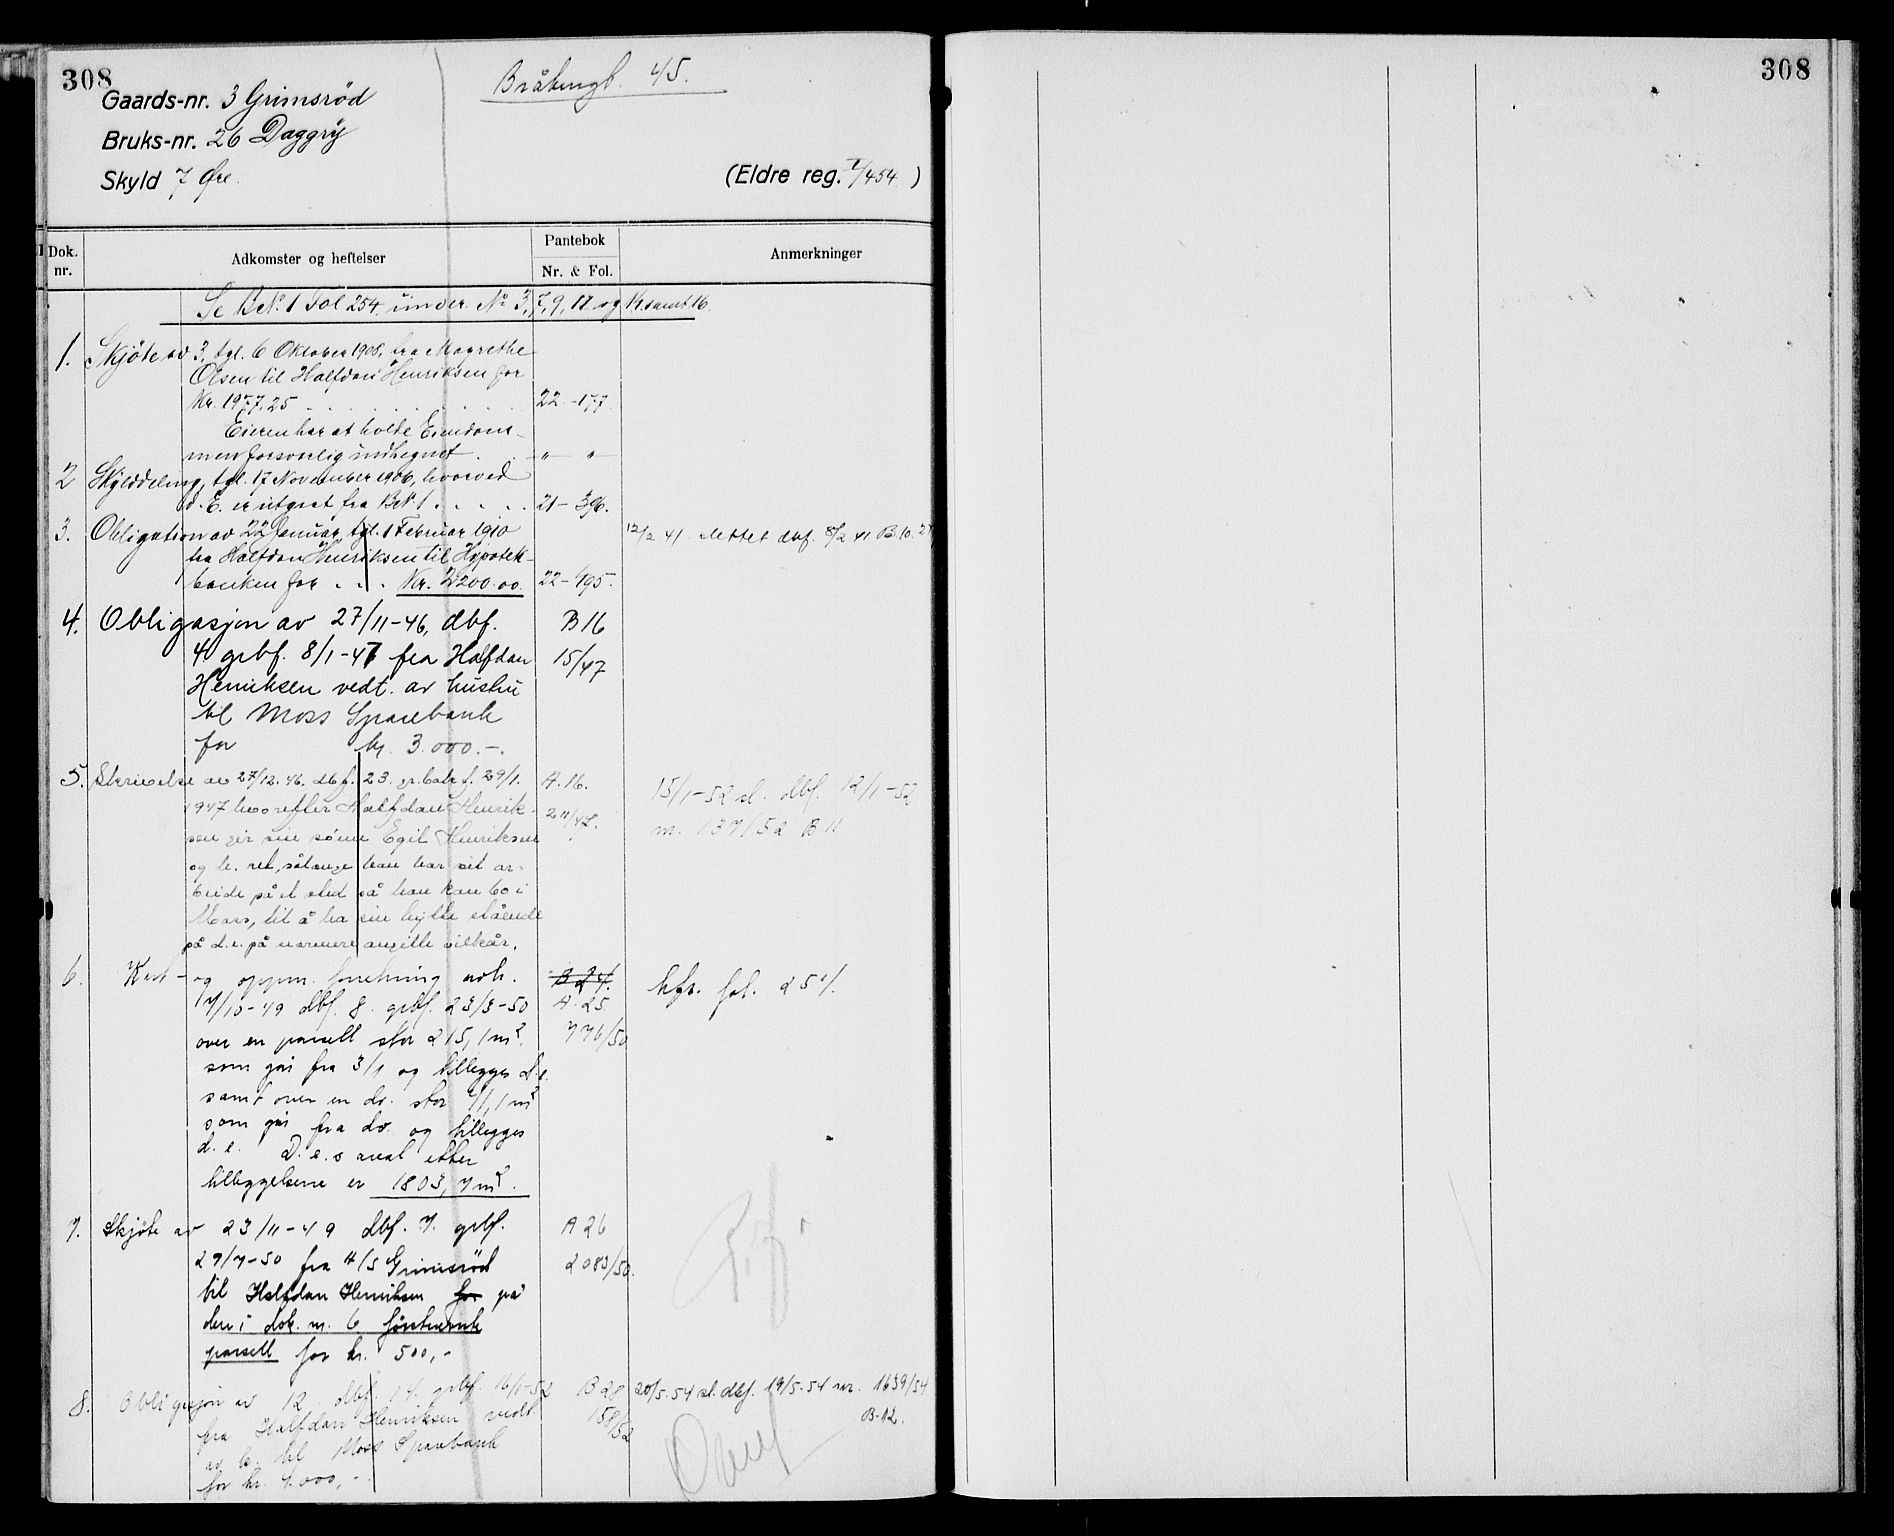 308
Gaards-nr. 3 Grimsrød
Bråtengt. 45.
Bruks-nr. 26 Daggry
Skyld 7 Øre.
(Eldre reg. I/454.)
Dok. nr.
Adkomster og heftelser
Pantebok
Nr. & Fol.
Anmerkninger
Se B.Nr. 1 Fol 254 under No 3, 7, 9, 11 og 14 samt 16
1. Skjöte av 3, tgl. 6 Oktober 1908, fra Magrethe
Olsen til Halfdan Henriksen for
Kr. 1977.25 22-177
Eieren har at holde Eiendom-
men forsvarlig indhegnet " "
2 Skylddeling, tgl. 17 November 1906, hvorved
d. E. er utgaat fra B.Nr. 1 21-396.
3. Obligation av 22 Januar, tgl. 1 Februar 1910 12/2 41 slettet dbf. 8/2 41 B.10.
fra Halfdan Henriksen til Hypotek-
banken for Kr. 2200.00 22-495.
4. Obligasjon av 27/11-46, dbf. B 16
4 grbf. 8/1-47 fra Halfdan 15/47
Henriksen vedt. av hustru
til Moss Sparebank
for kr. 3.000.-.
5. Skrivelse av 27/12.46. dbf. 23. gr.bok f. 29/1. A.16.
1947 hvorefter Halfdan Henrik-
sen gir sin sönn Egil Henriksen
og h. ret, sålenge han har sit ar-
beide på et sted så han kan bo i
Moss, til å ha sin hytte stående
på d.e. på nærmere angitte vilkår.
15/1-52 sl. dbf. 12/1-52
nr. 137/52 B 11
6. Kart- og oppm. forretning avh. B 24. hfr. fol. 251.
7/10-49 dbf. 8. grbf. 23/3-50 A. 25
over en parsell stor 215,1 m². 776/50
som går fra 3/1 og tillegges d.e.
samt over en do. stor 71,1 m²
som går fra do. og tillegges
d.e. D.e.s areal etter
tilleggelsene er 1803,7 m².
7. Skjöte av 23/11-49 dbf. 7. grbf. A 26
29/7-50 fra A/S Grimsrød 2083/50.
til Halfdan Henriksen for på
den i dok. nr. 6 förstnevnte
parsell for kr. 500,-
8. Obligasjon av 12 dbf. 14. grbf. 16/1-52 B 28 20/5.54 sl. dbf. 19/5.54 nr. 1639/54
fra Halfdan Henriksen vedt. 158/52 B-12.
av h. til Moss Sparebank
for kr. 4.000,-
308